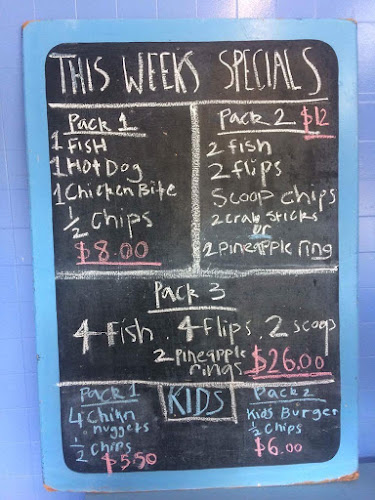 THIS WEEKS SPECIALS
Pack 1
1 FISH
1 HOT DOG
1 Chicken Bite
1/2 Chips
$8.00
Pack 2 $12
2 fish
2 flips
Scoop chips
2 crab sticks
or
2 pineapple ring
Pack 3
4 fish . 4 flips . 2 scoop
2 pineapple
rings $26.00
KIDS
Pack 1
4 Chikn
nuggets
1/2 chips
$5.50
Pack 2
Kids Burger
1/2 chips
$6.00